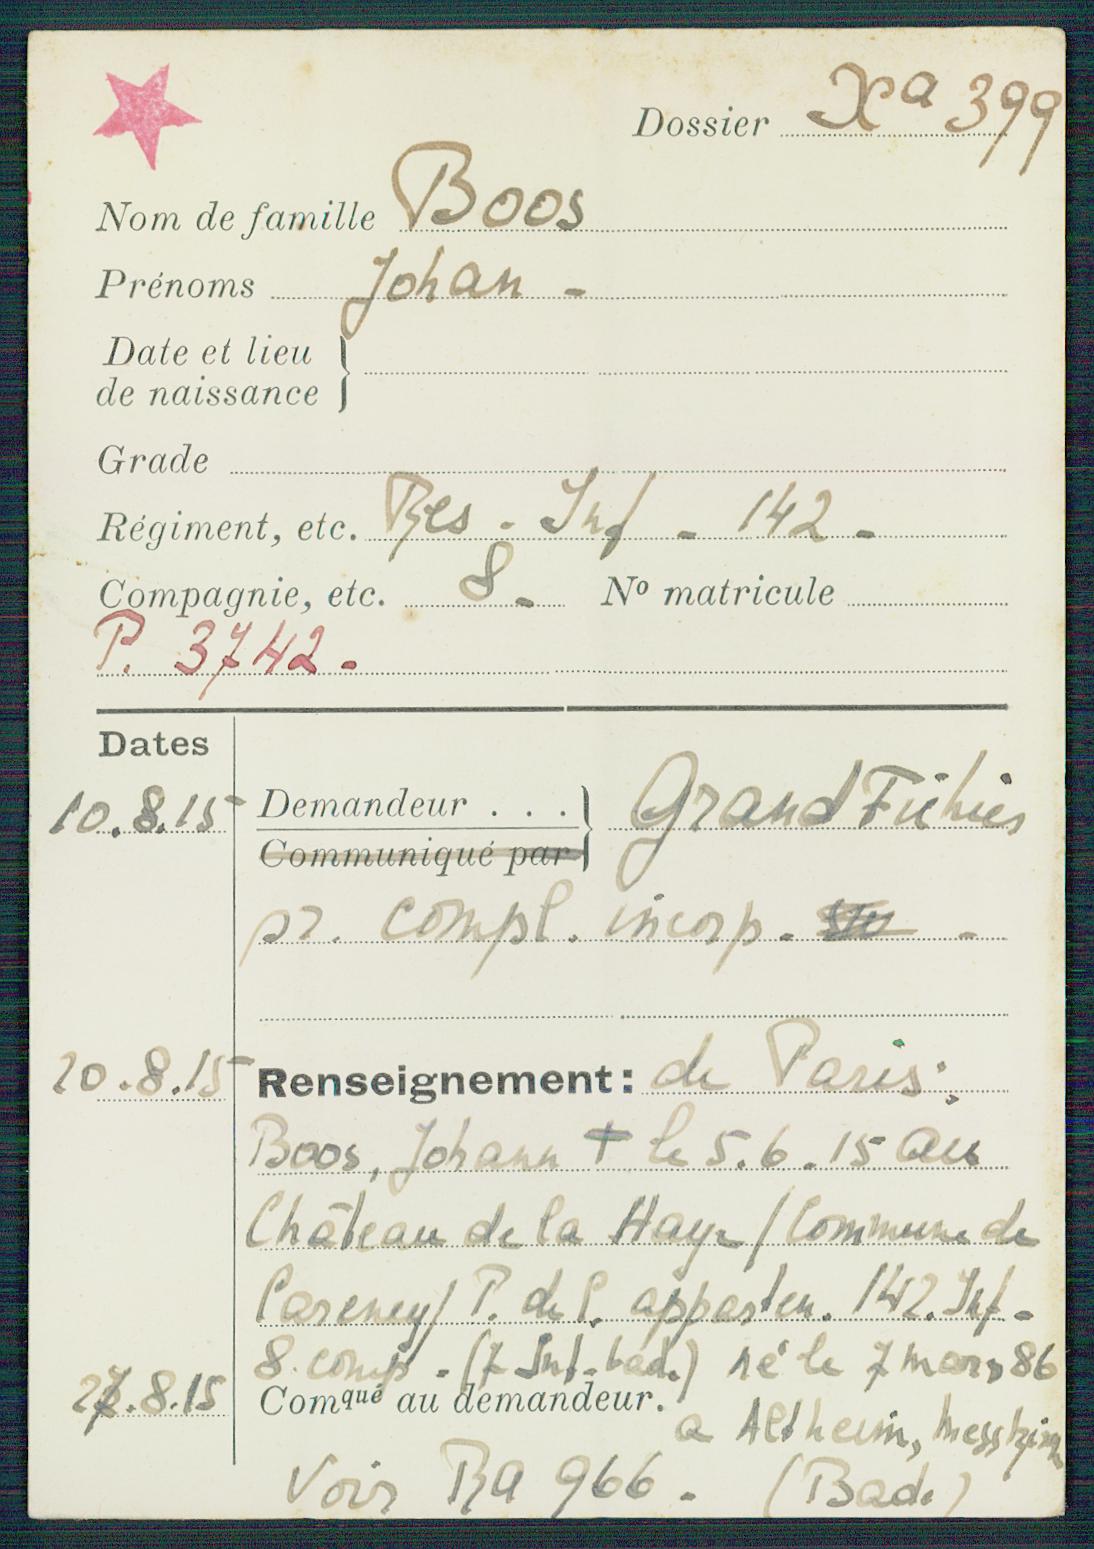 Dossier Xa 399
Nom de famille Boos
Prénoms Johan -
Date et lieu
de naissance
Grade
Régiment, etc. Res. Inf - 142 -
Compagnie, etc. 8 - No matricule
P. 3742 -
Dates
10.8.15 Demandeur . . . Grand Fichier
Communiqué par
pr. compl. incorp. -
20.8.15 Renseignement: de Paris:
Boos, Johann † le 5.6.15 au
Château de la Haye / Commune de
Carency / P. d. I. apparten. 142. Inf -
8. comp - (7 Inf. bad.) né le 7 mars 86
27.8.15 Comqué au demandeur.
a Altheim, Messkirch
Voir Ra 966 - (Bad.)